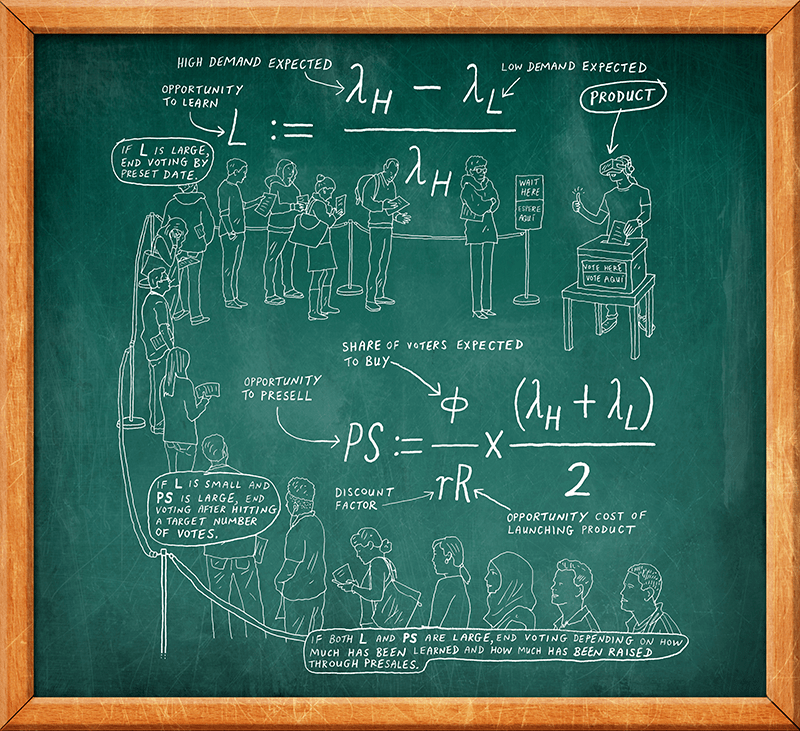 HIGH DEMAND EXPECTED
LOW DEMAND EXPECTED
OPPORTUNITY
TO LEARN
L := (λH − λL) / λH
PRODUCT
IF L IS LARGE,
END VOTING BY
PRESET DATE.
WAIT
HERE
ESPERE
AQUÍ
VOTE HERE
VOTE AQUÍ
SHARE OF VOTERS EXPECTED
TO BUY
OPPORTUNITY
TO PRESELL
PS := ϕ / rR × (λH + λL) / 2
DISCOUNT
FACTOR
OPPORTUNITY COST OF
LAUNCHING PRODUCT
IF L IS SMALL AND
PS IS LARGE, END
VOTING AFTER HITTING
A TARGET NUMBER
OF VOTES.
IF BOTH L AND PS ARE LARGE, END VOTING DEPENDING ON HOW
MUCH HAS BEEN LEARNED AND HOW MUCH HAS BEEN RAISED
THROUGH PRESALES.